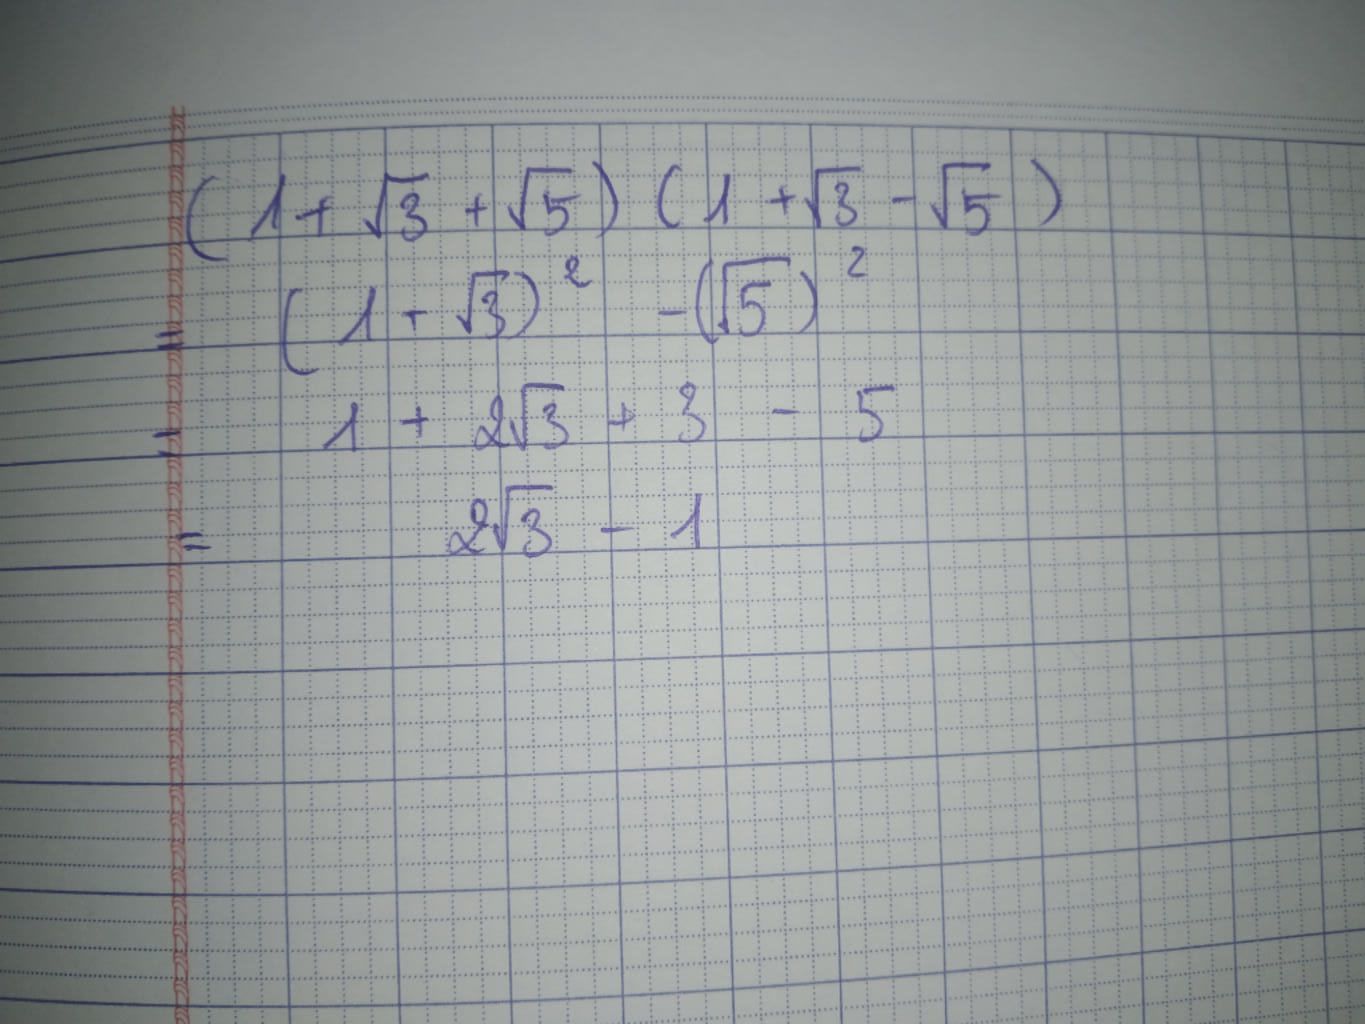 (1 + √3 + √5) (1 + √3 - √5)
= (1 + √3)² - (√5)²
= 1 + 2√3 + 3 - 5
= 2√3 - 1